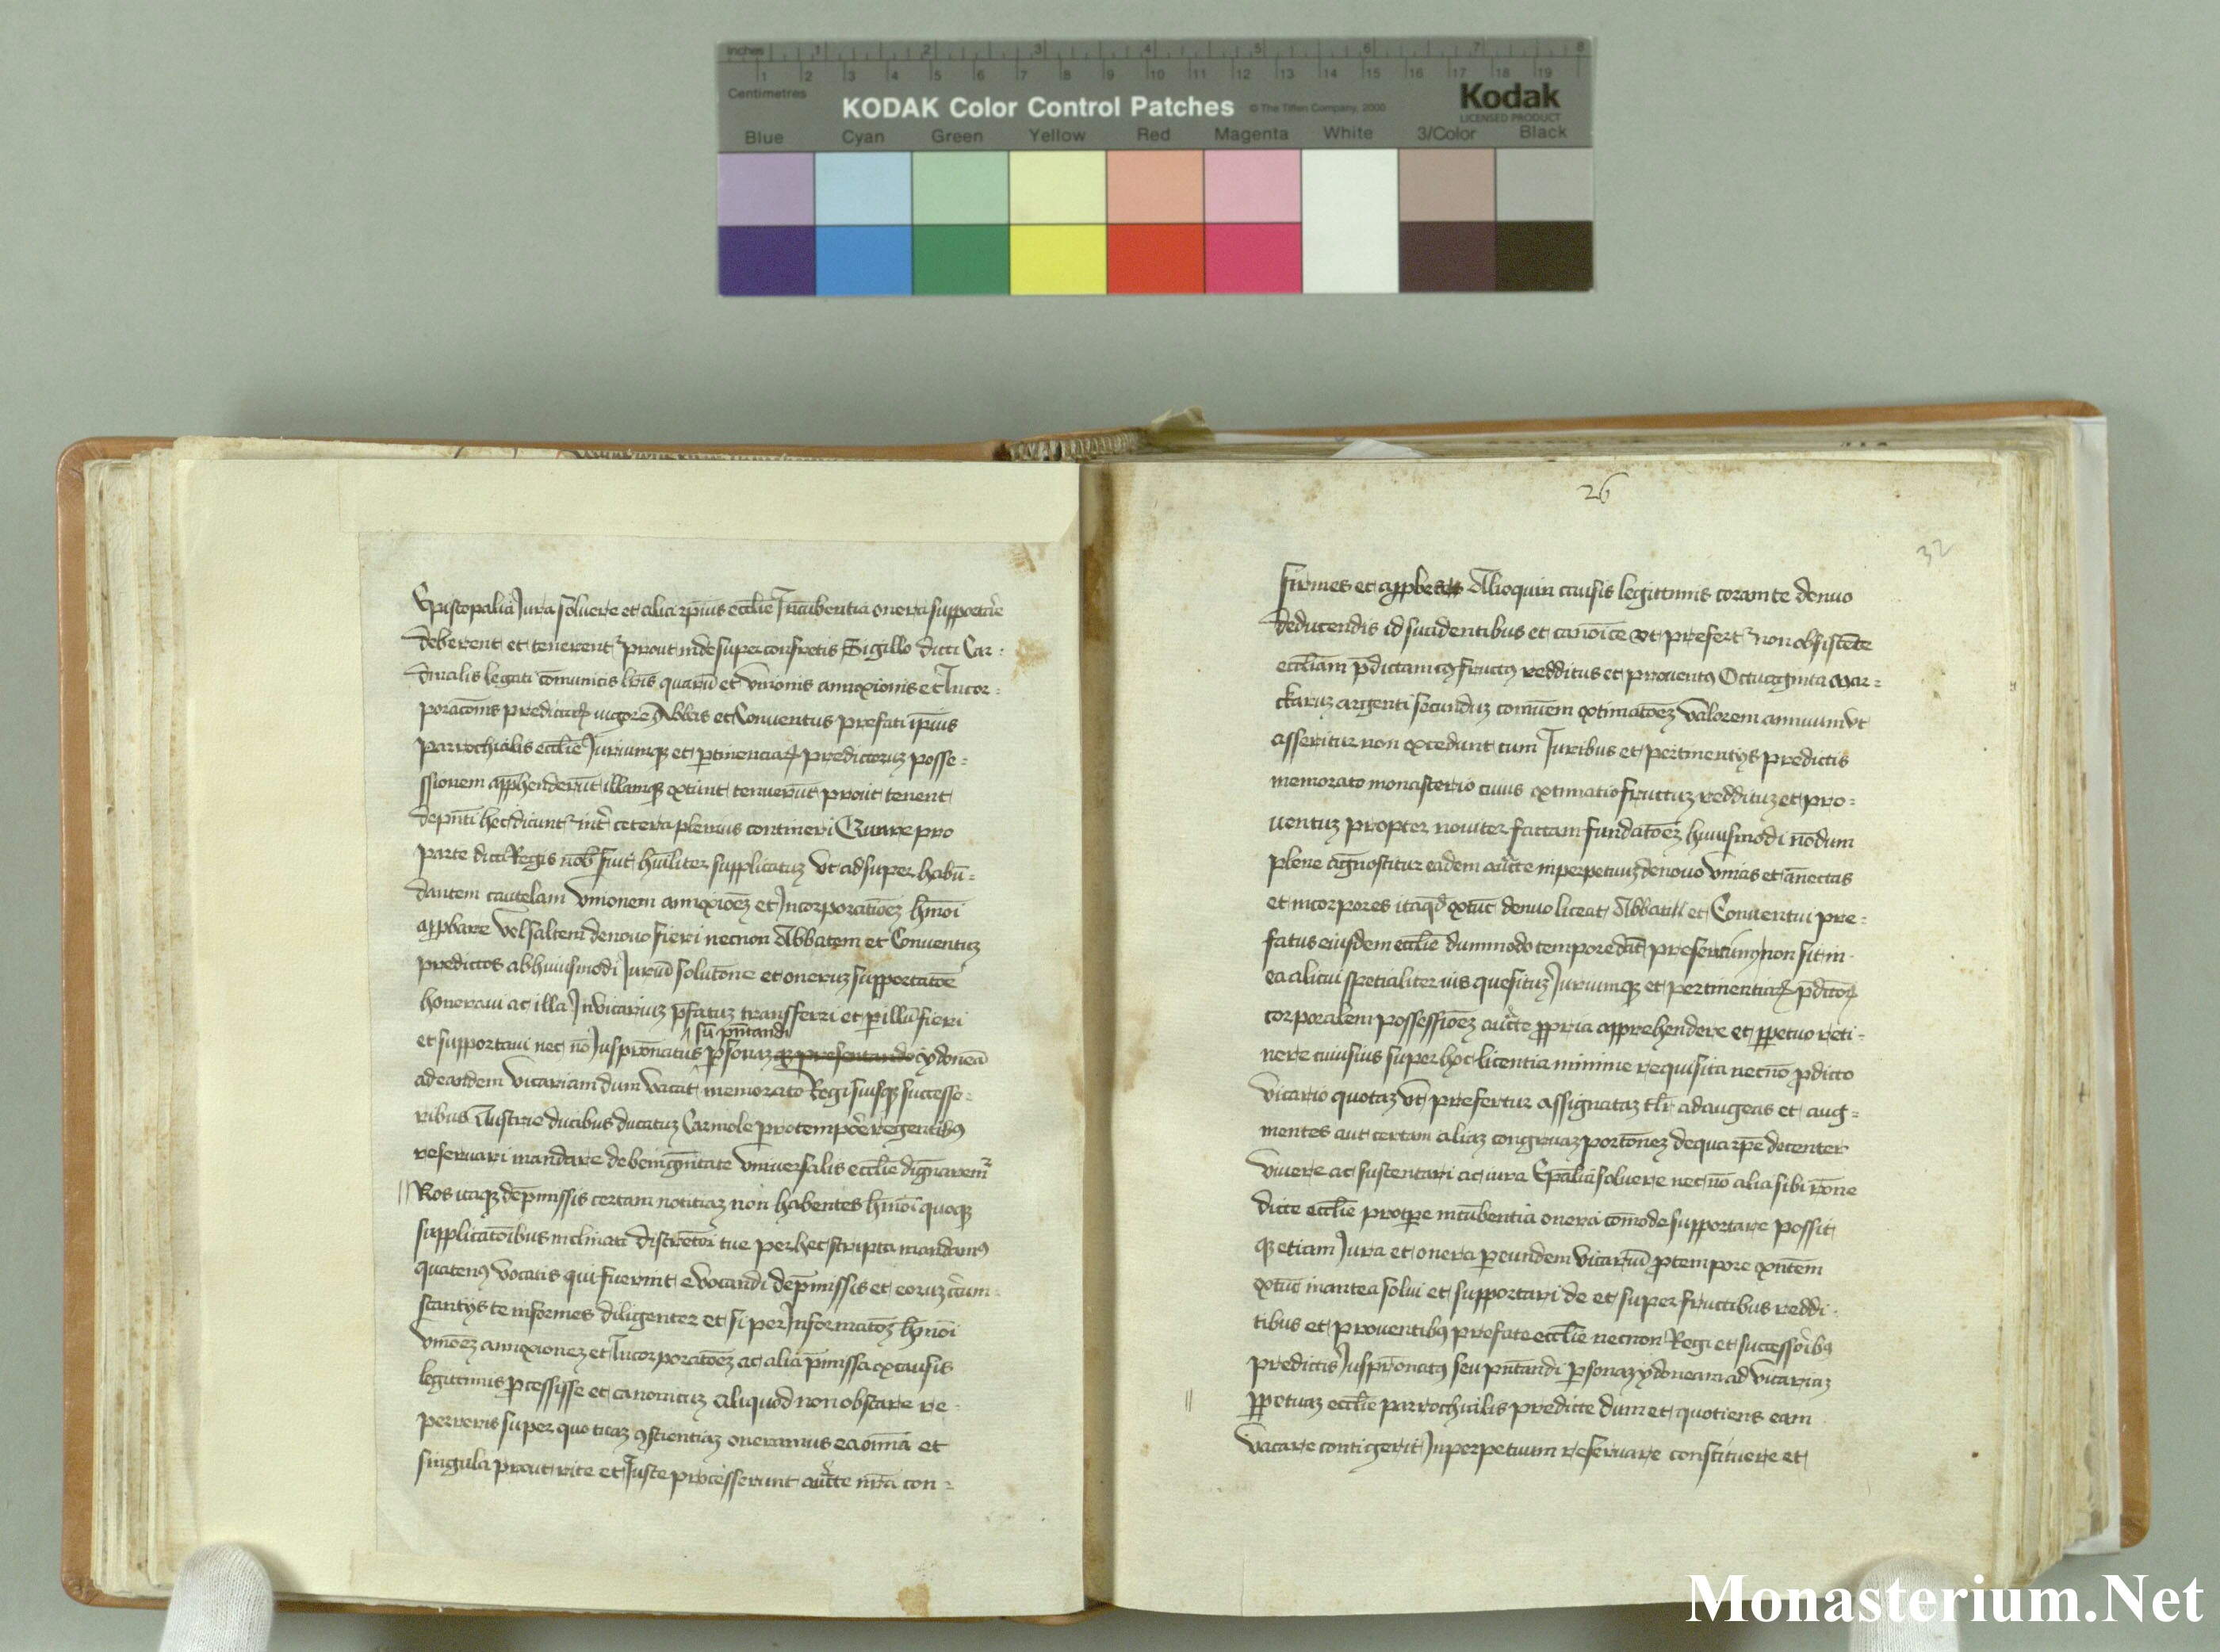 Inches 1 2 3 4 5 6 7 8
1 2 3 4 5 6 7 8 9 10 11 12 13 14 15 16 17 18 19
Centimetres
KODAK Color Control Patches © The Tiffen Company, 2000 Kodak
LICENSED PRODUCT
Blue Cyan Green Yellow Red Magenta White 3/Color Black
Ep̄istopalia Jura soluere et alia ip̄ius ecclīe Incūbentia onera supportare
deberent et tenerent prout inde super confectis Sigillo dicti Car=
dinalis legati cōmunitis lr̄is quarū et Vnionis annexionis et Incor=
poracōnis predictarꝝ vigore Abbas et Conuentus prefati ip̄ius
parrochialis ecclīe Juriumqꝫ et ptinenciarꝝ predictoruꝫ posse=
ssionem app̄henderūt illamqꝫ extunc tenuerūt prout tenent
de pn̄ti hec dicunt int̄ cetera plenius contineri Quare pro
parte dicti Regis nob̄ fuit hūiliter supplicatuꝫ vt ad super habū=
dantem cautelam Vnionem annexiōeꝫ et Incorporatiōeꝫ hm̄oi
app̄bare vel saltem denouo fieri necnon Abbatem et Conuentuꝫ
predictos ab huiusmodi Juriū solutōne et oneruꝫ supportatōe
honerari ac illa In Vicariuꝫ p̄fatuꝫ transferri et p illū fieri
et supportari nec nō Juspr̄onatus psonaꝫ ydoneā
seu pn̄tandi
ad eandem Vicariam dum vacat memorato Regi suisqꝫ successo=
ribus Austrie ducibus ducatuꝫ Carniole pro tempore regentibꝯ
reseruari mandare de benignitate vniuersalis ecclīe dignarem̄
Nos itaqꝫ de p̄missis certam notitiaꝫ non habentes hm̄oi quoqꝫ
supplicatōibus inclinati discretōi tue per hec scripta mandamꝯ
quatenꝯ vocatis qui fuerint euocandi de p̄missis et eoruꝫ circum=
stantijs te informes diligenter et si per Informatōeꝫ hm̄oi
vniōeꝫ annexioneꝫ et Incorporatōeꝫ ac alia p̄missa ex causis
legittimis pcessisse et canonicuꝫ aliquod non obstare re=
pereris super quo tuaꝫ ꝯscientiaꝫ oneramus ea omīa et
singula prout rite et Juste processerunt auc̄te nr̄a con=
26
32
firmes et app̄bes Alioquin causis legittimis coram te denuo
deducendis id suadentibus et canoīce vt prefert non obsistēte
ecclīam p̄dictam cuiꝯ fructꝯ redditus et prouentꝯ Octuaginta mar=
ckaruꝫ argenti secunduꝫ comūem extimatōeꝫ valorem annuum vt
asseritur non excedunt cum Juribus et pertinentijs predictis
memorato monasterio cuius extimatio fructuꝫ reddituꝫ et pro=
uentuꝫ propter nouiter factam fundatōeꝫ huiusmodi nōdum
plene cognoscitur eadem auc̄te inperpetuuꝫ denouo vnias et ānectas
et incorpores ita qd̄ extūc denuo liceat Abbati et Conuentui pre=
fatis eiusdem ecclīe dummodo tempore dat̄ presentium non sit in
ea alicui specialiter ius quesituꝫ Juriumqꝫ et pertinentiarꝝ p̄dictorꝝ
corporalem possessiōeꝫ auc̄te ppria apprehendere et ppetuo reti=
nere cuiusuis super hoc licentia minime requisita necnō pdicto
vicario quotaꝫ vt prefertur assignataꝫ adaugeas et aug=
mentes aut certam aliaꝫ congruaꝫ portōneꝫ de qua ip̄e decenter
viuere ac sustentari ac iura Ep̄alia soluere necnō alia sibi rōne
dicte ecclīe protpe incūbentia onera cōmode supportare possit
qꝫ etiam Jura et onera p eundem vicariū ptempore exn̄tem
extūc inantea solui et supportari de et super fructibus reddi=
tibus et prouentibꝯ prefate ecclīe necnon Regi et successoribꝯ
predictis Juspr̄onatꝯ seu pn̄tandi psonaꝫ ydoneam ad vicariaꝫ
ppetuaꝫ ecclīe parrochialis predicte dum et quotiens eam
vacare contigerit Inperpetuum reseruare constituere et
Monasterium.Net